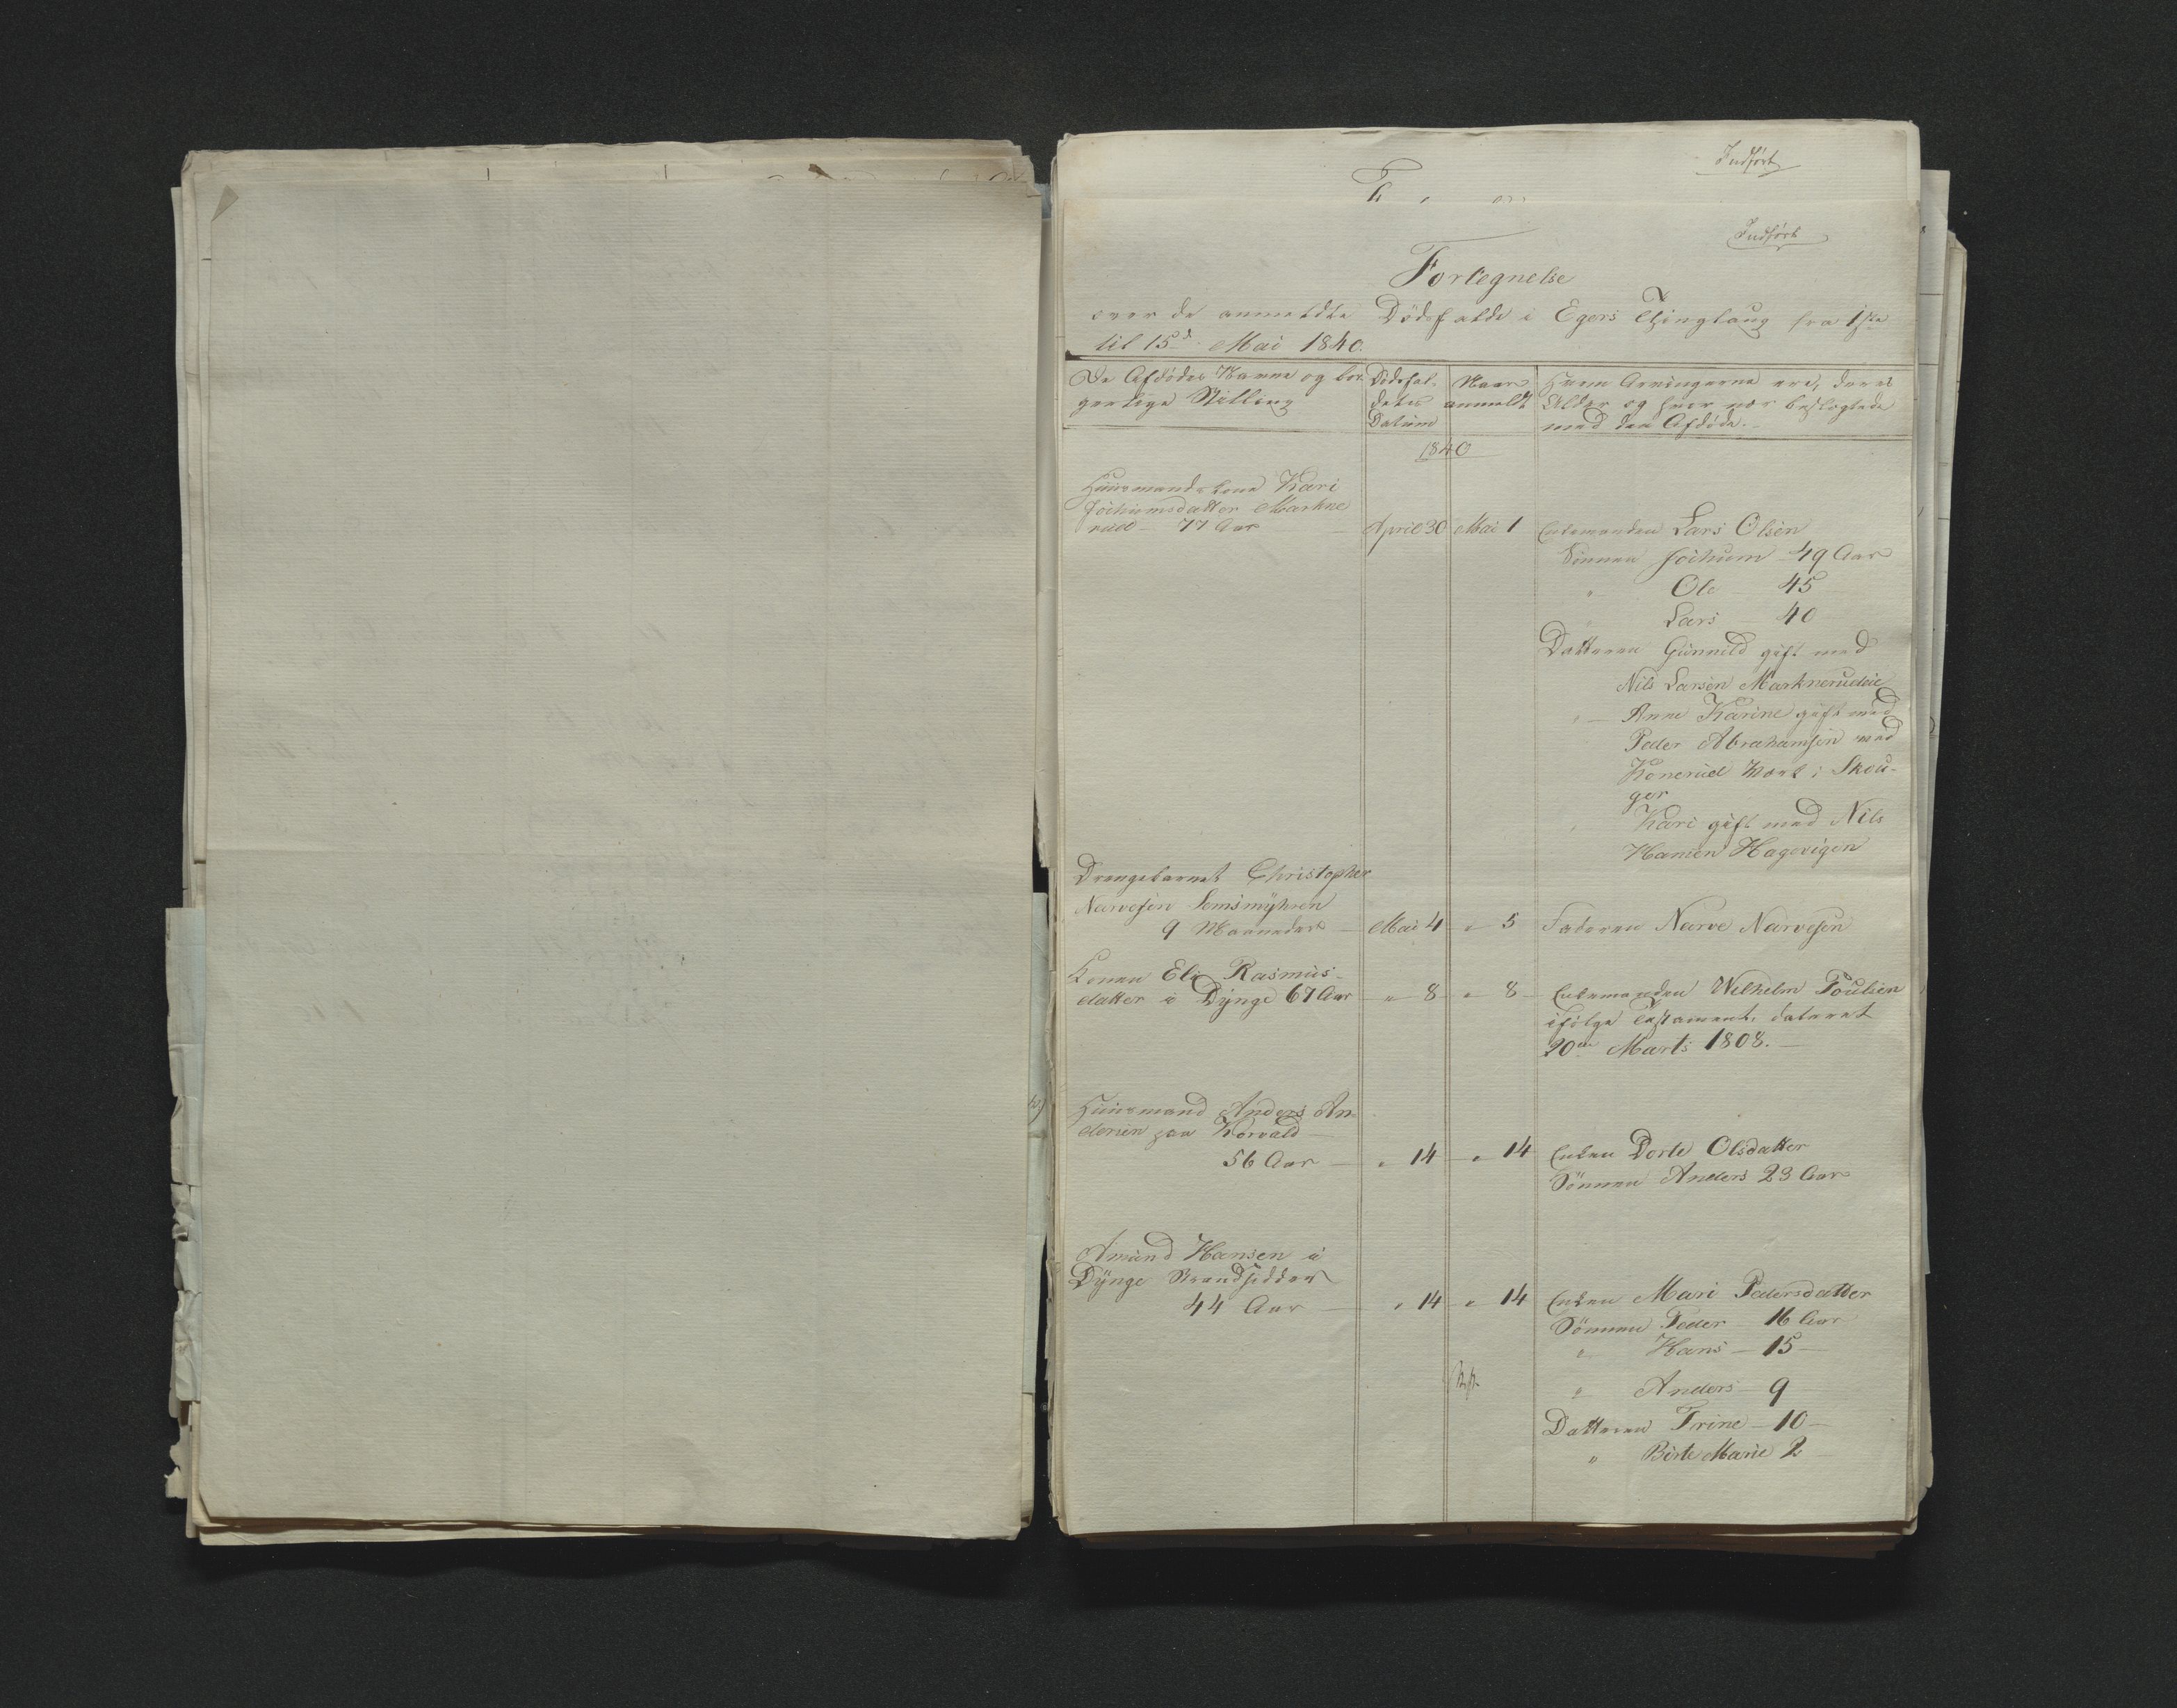 Indført
Indført
Fortegnelse
over de anmeldte Dødsfalde i Egers Thinglaug fra 1ste
til 15d Mai 1840.
De Afdødes Navne og bor-
gerlige Stilling
Dødsfal-
dets
Datum
Naar
anmeldt
Hvem Arvingerne ere, deres
Alder og hvor nær beslægtede
med den Afdøde.
1840
Huusmandskone Kari
Jochumsdatter Markne
rued 77 Aar
April 30 Mai 1
Enkemanden Lars Olsen
Sønnen Jochum 49 Aar
" Ole 45
Lars 40
Datteren Gunnild gift med
Nils Larsen Marknerudeie
" Anne Karine gift med
Peder Abrahamsen ved
Konerud Værk i Skou-
ger
Kari gift med Nils
Hansen Hagevigen
Drengebarnet Christopher
Narvesen Semsmyhren
9 Maaneder
Mai 4 " 5
Faderen Narve Narvesen
Konen Eli Rasmus-
datter i Dynge 67 Aar
" 8 " 8
Enkemanden Wilhelm Poulsen
ifølge Testament, dateret
20de Marts 1808.
Huusmand Anders An-
dersen paa Horvald
56 Aar
" 14 " 14
Enken Dorte Olsdatter
Sønnen Anders 23 Aar
Amund Hansen i
Dynge Strandsidder
44 Aar
" 14 " 14
Enken Mari Pedersdatter
Sønnen Peder 16 Aar
" Hans 15
" Anders 9
Datteren Trine 10
" Birte Marie 2